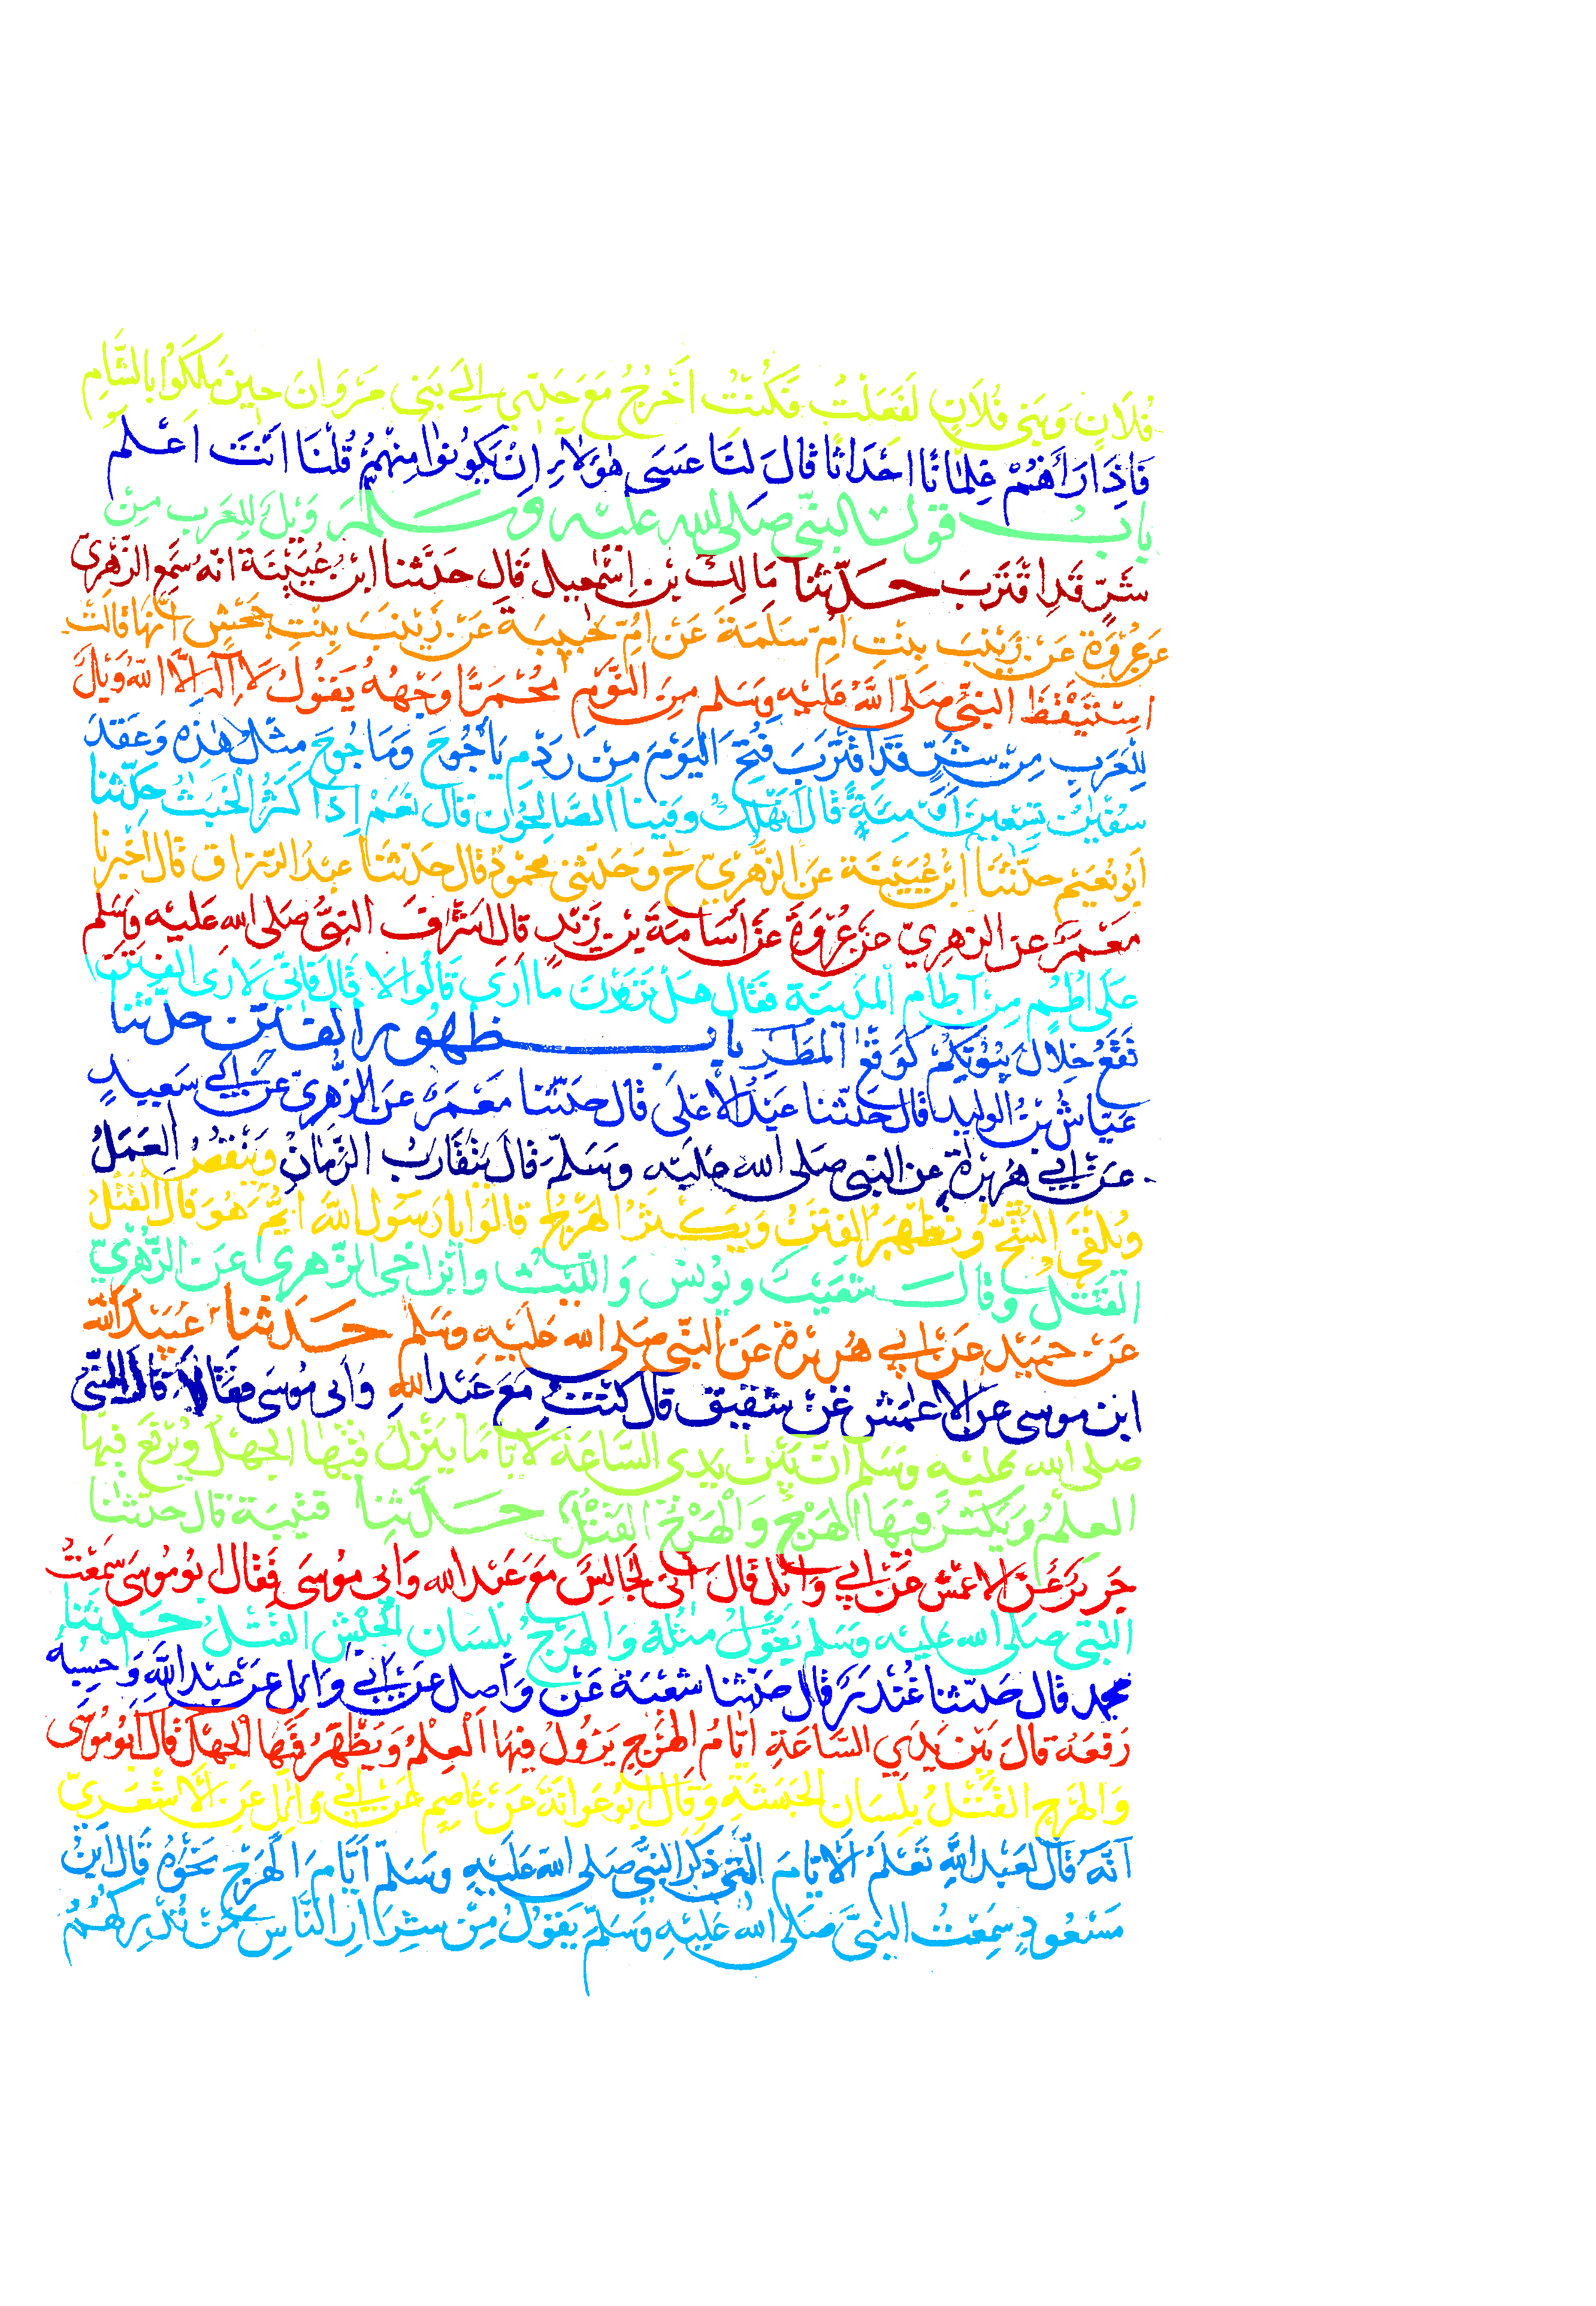 فُلَانٍ وَبَنِي فُلَانٍ لَفَعَلْتُ فَكُنْتُ أَخْرُجُ مَعَ جَدِّي إِلَى بَنِي مَرْوَانَ حِينَ مَلَكُوا بِالشَّامِ
فَإِذَا رَأَهُمْ غِلْمَانًا أَحْدَاثًا قَالَ لَنَا عَسَى هَؤُلَاءِ اِنْ يَكُونُوا مِنْهُمْ قُلْنَا أَنْتَ أَعْلَم
باب قول النبي صلى الله عليه وسلم وَيْلٌ لِلْعَرَبِ مِنْ
شَرٍّ قَدِ اقْتَرَبَ حَدَّثنا مَالِكُ بْنُ إِسْمٰعِيلَ قَالَ حَدَّثنا ابْنُ عُيَيْنَةَ انَّهُ سَمِعَ الزُّهْرِيَّ
عَنْ عُرْوَةَ عَنْ زَيْنَبَ بِنْتِ أُمِّ سَلَمَةَ عَنْ أُمِّ حَبِيبَةَ عَنْ زَيْنَبَ بِنْتِ جَحْشٍ أَنَّهَا قَالَتْ
اسْتَيْقَظَ النبيُّ صَلَّى اللَّهُ عَلَيْهِ وَسَلَم مِنَ النَّوْمِ مُحْمَرًّا وَجْهُهُ يَقُولُ لَا إِلَهَ إِلَّا اللهُ وَيْلٌ
لِلْعَرَبِ مِنْ شَرٍّ قَدِ اقْتَرَبَ فُتِحَ الْيَوْمَ مِنْ رَدْمِ يَأْجُوجَ وَمَاجُوجَ مِثْلُ هٰذِهِ وَعَقَدَ
سُفْيٰنُ تِسْعِينَ أَوْ مِئَةً قَالَ أَنَهْلِكُ وَفِينا الصَّالِحُونَ قَالَ نَعَمْ إِذَا كَثُرَ الْخَبَثُ حدّثنا
أَبُو نُعَيْمٍ حَدَّثنَا ابْنُ عُيَيْنَةَ عَنِ الزُّهْرِيِّ ح وَحَدّثنى محمُودٌ قال حَدّثنَا عبدُ الرزاق قَالَ أخْبرنا
مَعْمَرٌ عن الزهرِيِّ عَنْ عُرْوَةَ عَنْ أُسَامَةَ بْنِ زَيْدٍ قال أَشْرَفَ النبيُّ صَلى الله عَليْه وَسَلم
عَلَى أُطُمٍ مِنْ آطَامِ الْمَدِينَةِ فَقَال هَلْ تَرَوْنَ مَا أَرَى قَالُوا لا قَالَ فَإِنِّي لَأَرَى الْفِتَنَ
تَقَعُ خِلَالَ بُيُوتِكُمْ كَوَقْعِ الْمَطَرِ باب ظهور الفتن حدثنا
عَيَّاشُ بْنُ الوليدِ قَالَ حَدّثنا عَبْدُ الأَعْلَى قَال حَدّثنا مَعْمَرٌ عَنِ الزُّهريِّ عَنْ سَعِيدٍ
عَنْ أَبِي هُرَيْرَةَ عن النبى صَلى الله عَليه وَسَلمَ قَالَ يَتَقَارَبُ الزَّمَانُ وَيَنْقُصُ الْعَمَلُ
وَيُلْقَى الشُّحُّ وَتَظْهَرُ الْفِتَنُ وَيَكْثُرُ الْهَرْجُ قالُوا يَا رَسُول اللهِ أيُّمَ هُوَ قَال الْقَتْلُ
الْقَتْلُ وَقَال شُعَيْبٌ وَيُونُسُ وَاللَّيْثُ وَابْنُ أَخِي الزُّهْرِي عَنِ الزُّهْرِيِّ
عَنْ حُمَيْدٍ عَنْ أَبِي هُرَيْرَةَ عَن النبّى صَلى الله عَلَيْهِ وَسَلم حَدّثنا عُبَيْدُ اللهِ
ابن موسى عن الاعْمَش عَنْ شَقِيقٍ قال كُنْتُ مَعَ عَبْد اللهِ وَأبى مُوسَى فَقَالَا قَالَ النبيُّ
صلى الله عليْه وَسَلم إنَّ بَيْنَ يَدَي السَّاعَةِ لَأَيَّامًا يَنْزِلُ فِيْهَا الْجَهْلُ وَيُرْفَعُ فِيهَا
الْعِلْمُ وَيَكْثُرُ فِيهَا الْهَرْجُ وَالْهَرْجُ الْقَتْلُ حَدَّثنا قُتَيْبَة قال حَدّثنا
جَرِيرٌ عَنِ الاعْمَش عَنْ أَبِي وَائلٍ قَالَ انى لَجَالِسٌ مَعَ عَبْد الله وَأبى مُوسَى فَقَال ابُو مُوسَى سَمِعْتُ
النبّى صَلى الله عليه وَسَلم يَقُولُ مثْلَهُ وَالْهَرْجُ بِلِسَان الْحَبَشِ القَتْلُ حَدّثنا
محمد قال حدّثنا غُنْدَرٌ قَال حَدّثنا شُعْبَة عَنْ وَاصل عَنْ أَبِي وَائِلٍ عَنْ عَبْدِ اللهِ وَاحسِبُهُ
رَفَعَهُ قَالَ بَيْنَ يَدَيِ السَّاعَةِ أَيَّامُ الْهَرْجِ يَزُولُ فِيهَا الْعِلْمُ وَيَظْهَرُ فِيهَا الْجَهْلُ قَالَ أَبُو مُوسَى
وَالْهَرْجُ القَتْلُ بِلِسَان الْحَبَشَةِ وَقَالَ أبُو عَوَانَةَ عَنْ عَاصِمٍ عَنْ أَبِي وَائِلٍ عَنِ الأَشْعَرِيِّ
أَنَّهُ قَالَ لِعَبْدِ اللهِ تَعْلَمُ الْأَيَّامَ الَّتِي ذَكَرَ النبيُّ صَلى الله عَلَيْهِ وَسَلّم أَيَّامَ الْهَرْجِ نَحْوَهُ قَالَ ابْنُ
مَسْعُودٍ سَمِعْتُ النبيَّ صَلى اللهُ عَلَيْهِ وَسَلَّم يَقُولُ مِنْ شِرَارِ النَّاسِ مَنْ تُدْرِكُهُمُ